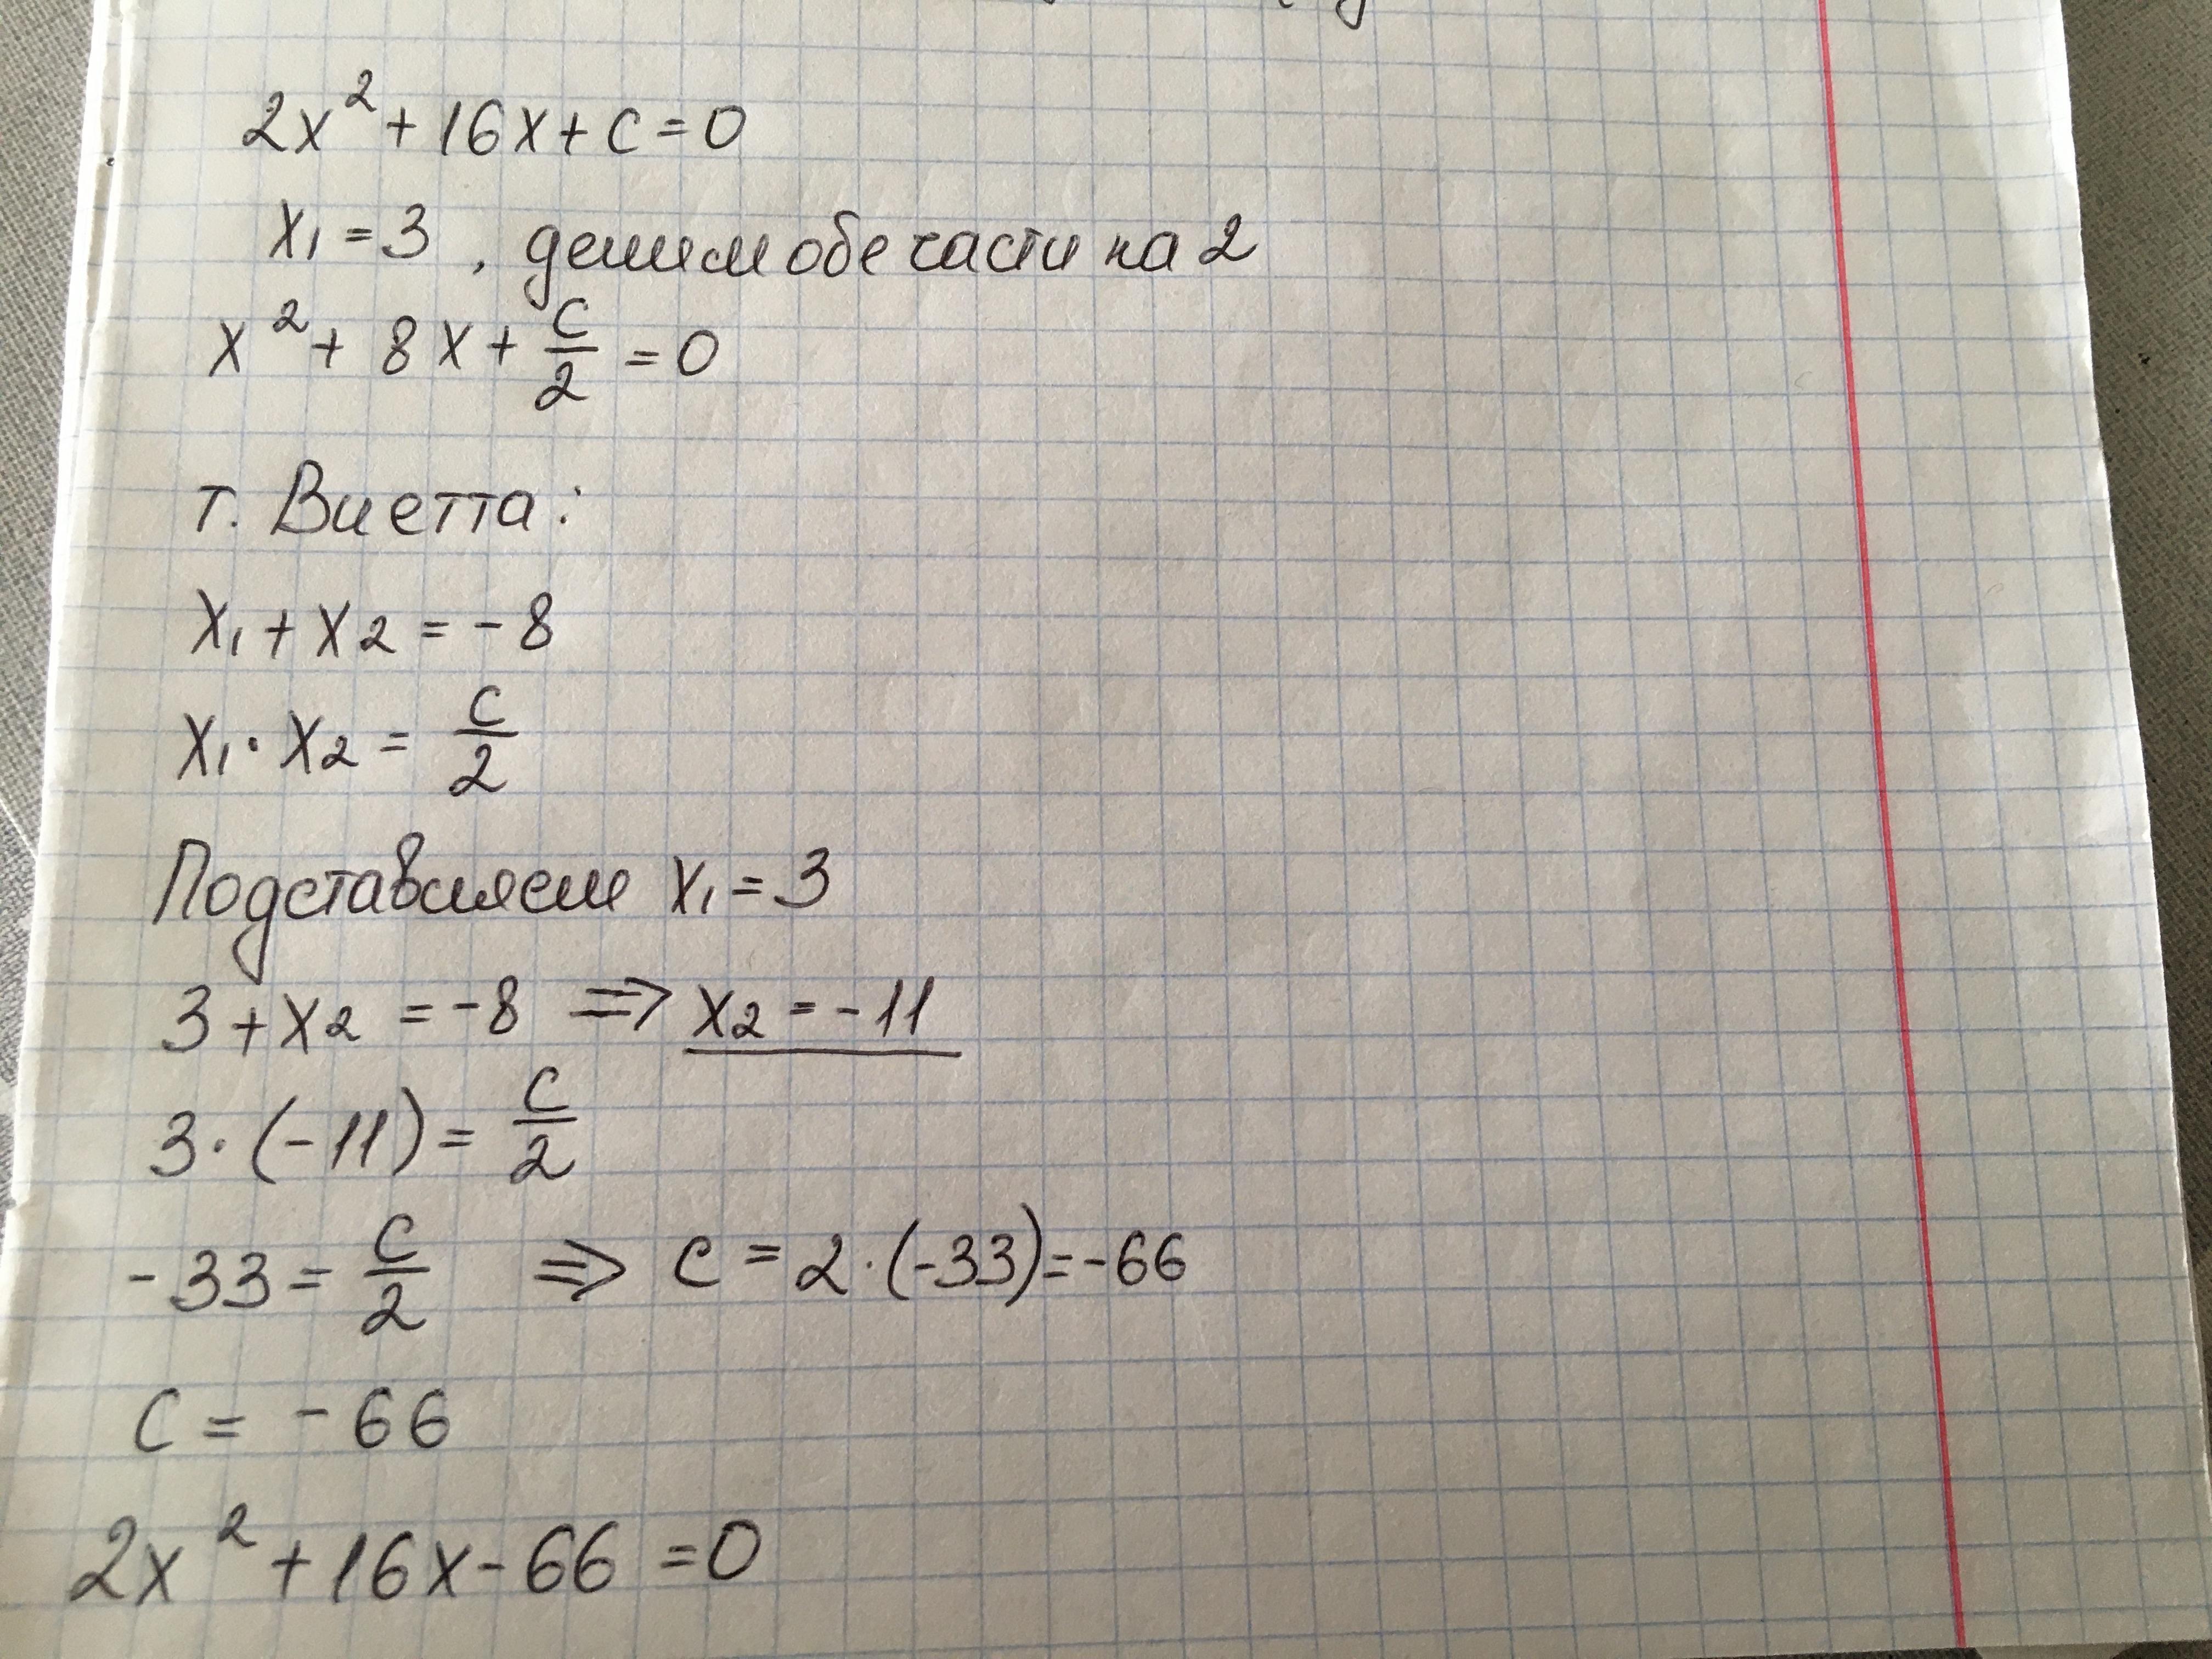 2x² + 16x + c = 0
x₁ = 3 , делим обе части на 2
x² + 8x + c/2 = 0
т. Виетта:
x₁ + x₂ = -8
x₁ · x₂ = c/2
Подставляем x₁ = 3
3 + x₂ = -8 => x₂ = -11
3 · (-11) = c/2
-33 = c/2 => c = 2 · (-33) = -66
c = -66
2x² + 16x - 66 = 0